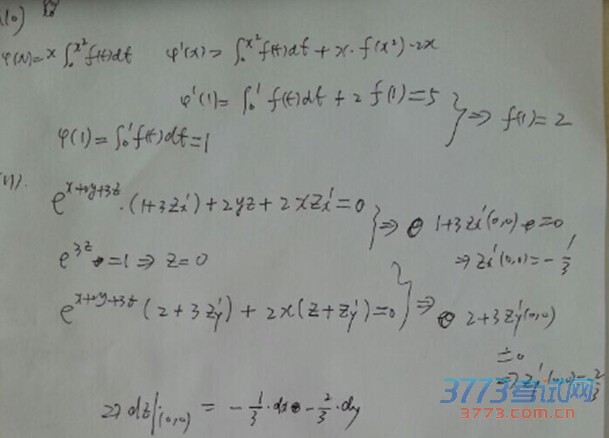 (10)
φ(x)=x∫₀^{x²}f(t)dt φ'(x)=∫₀^{x²}f(t)dt+x·f(x²)·2x
φ'(1)=∫₀^1 f(t)dt+2f(1)=5
⇒ f(1)=2
φ(1)=∫₀^1 f(t)dt=1
(11).
e^{x+2y+3z}·(1+3z'x)+2yz+2xz'x=0
⇒ 1+3z'x(0,0)=0
e^{3z}=1⇒z=0
⇒z'x(0,0)=-1/3
e^{x+2y+3z}(2+3z'y)+2x(z+z'y)=0
⇒ 2+3z'y(0,0)
=0
⇒z'y(0,0)=-2/3
⇒dz|(0,0)=-1/3·dx-2/3·dy
3773考试网
3773.com.cn